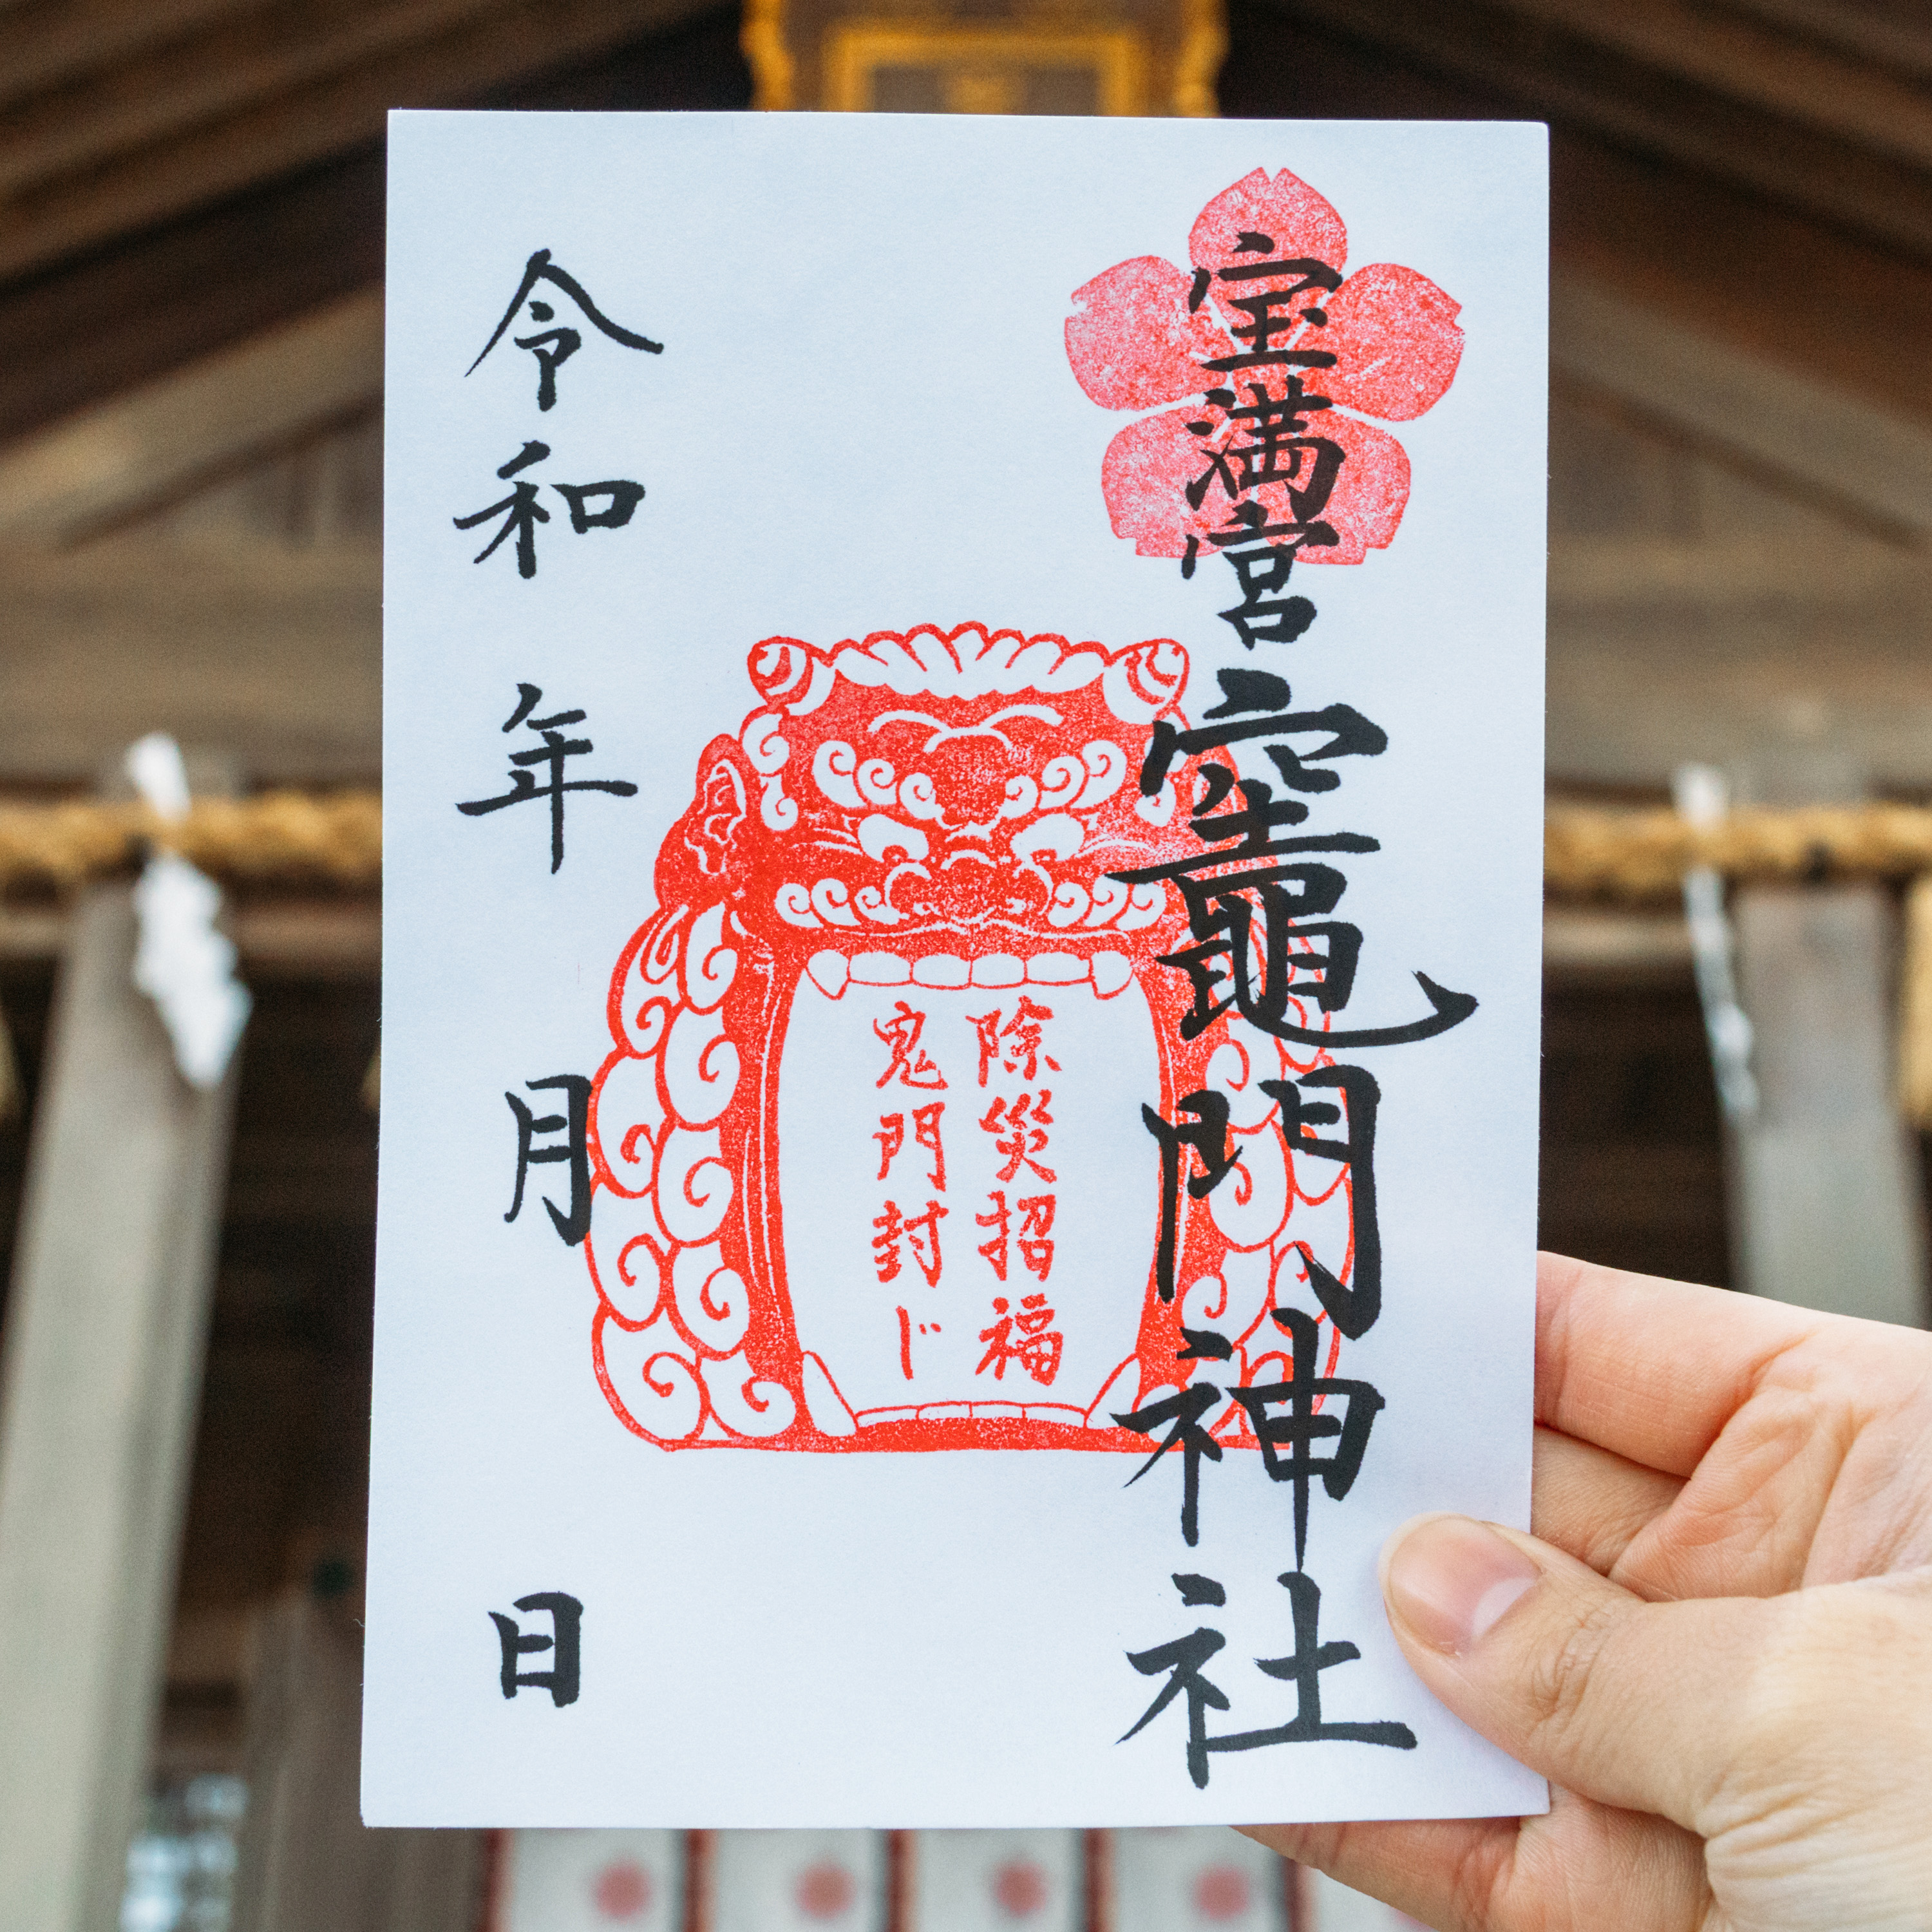 宝満宮竈門神社
除災招福
鬼門封じ
令和 年 月 日